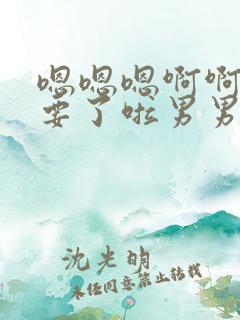 嗯嗯嗯啊啊
要了啦男男
沈光明
未经同意禁止转载